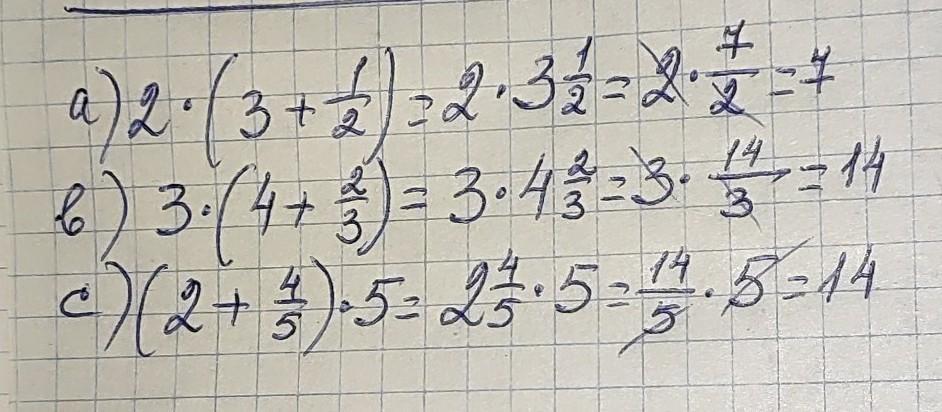 a) 2 · (3 + 1/2) = 2 · 3 1/2 = 2 · 7/2 = 7
b) 3 · (4 + 2/3) = 3 · 4 2/3 = 3 · 14/3 = 14
c) (2 + 4/5) · 5 = 2 4/5 · 5 = 14/5 · 5 = 14